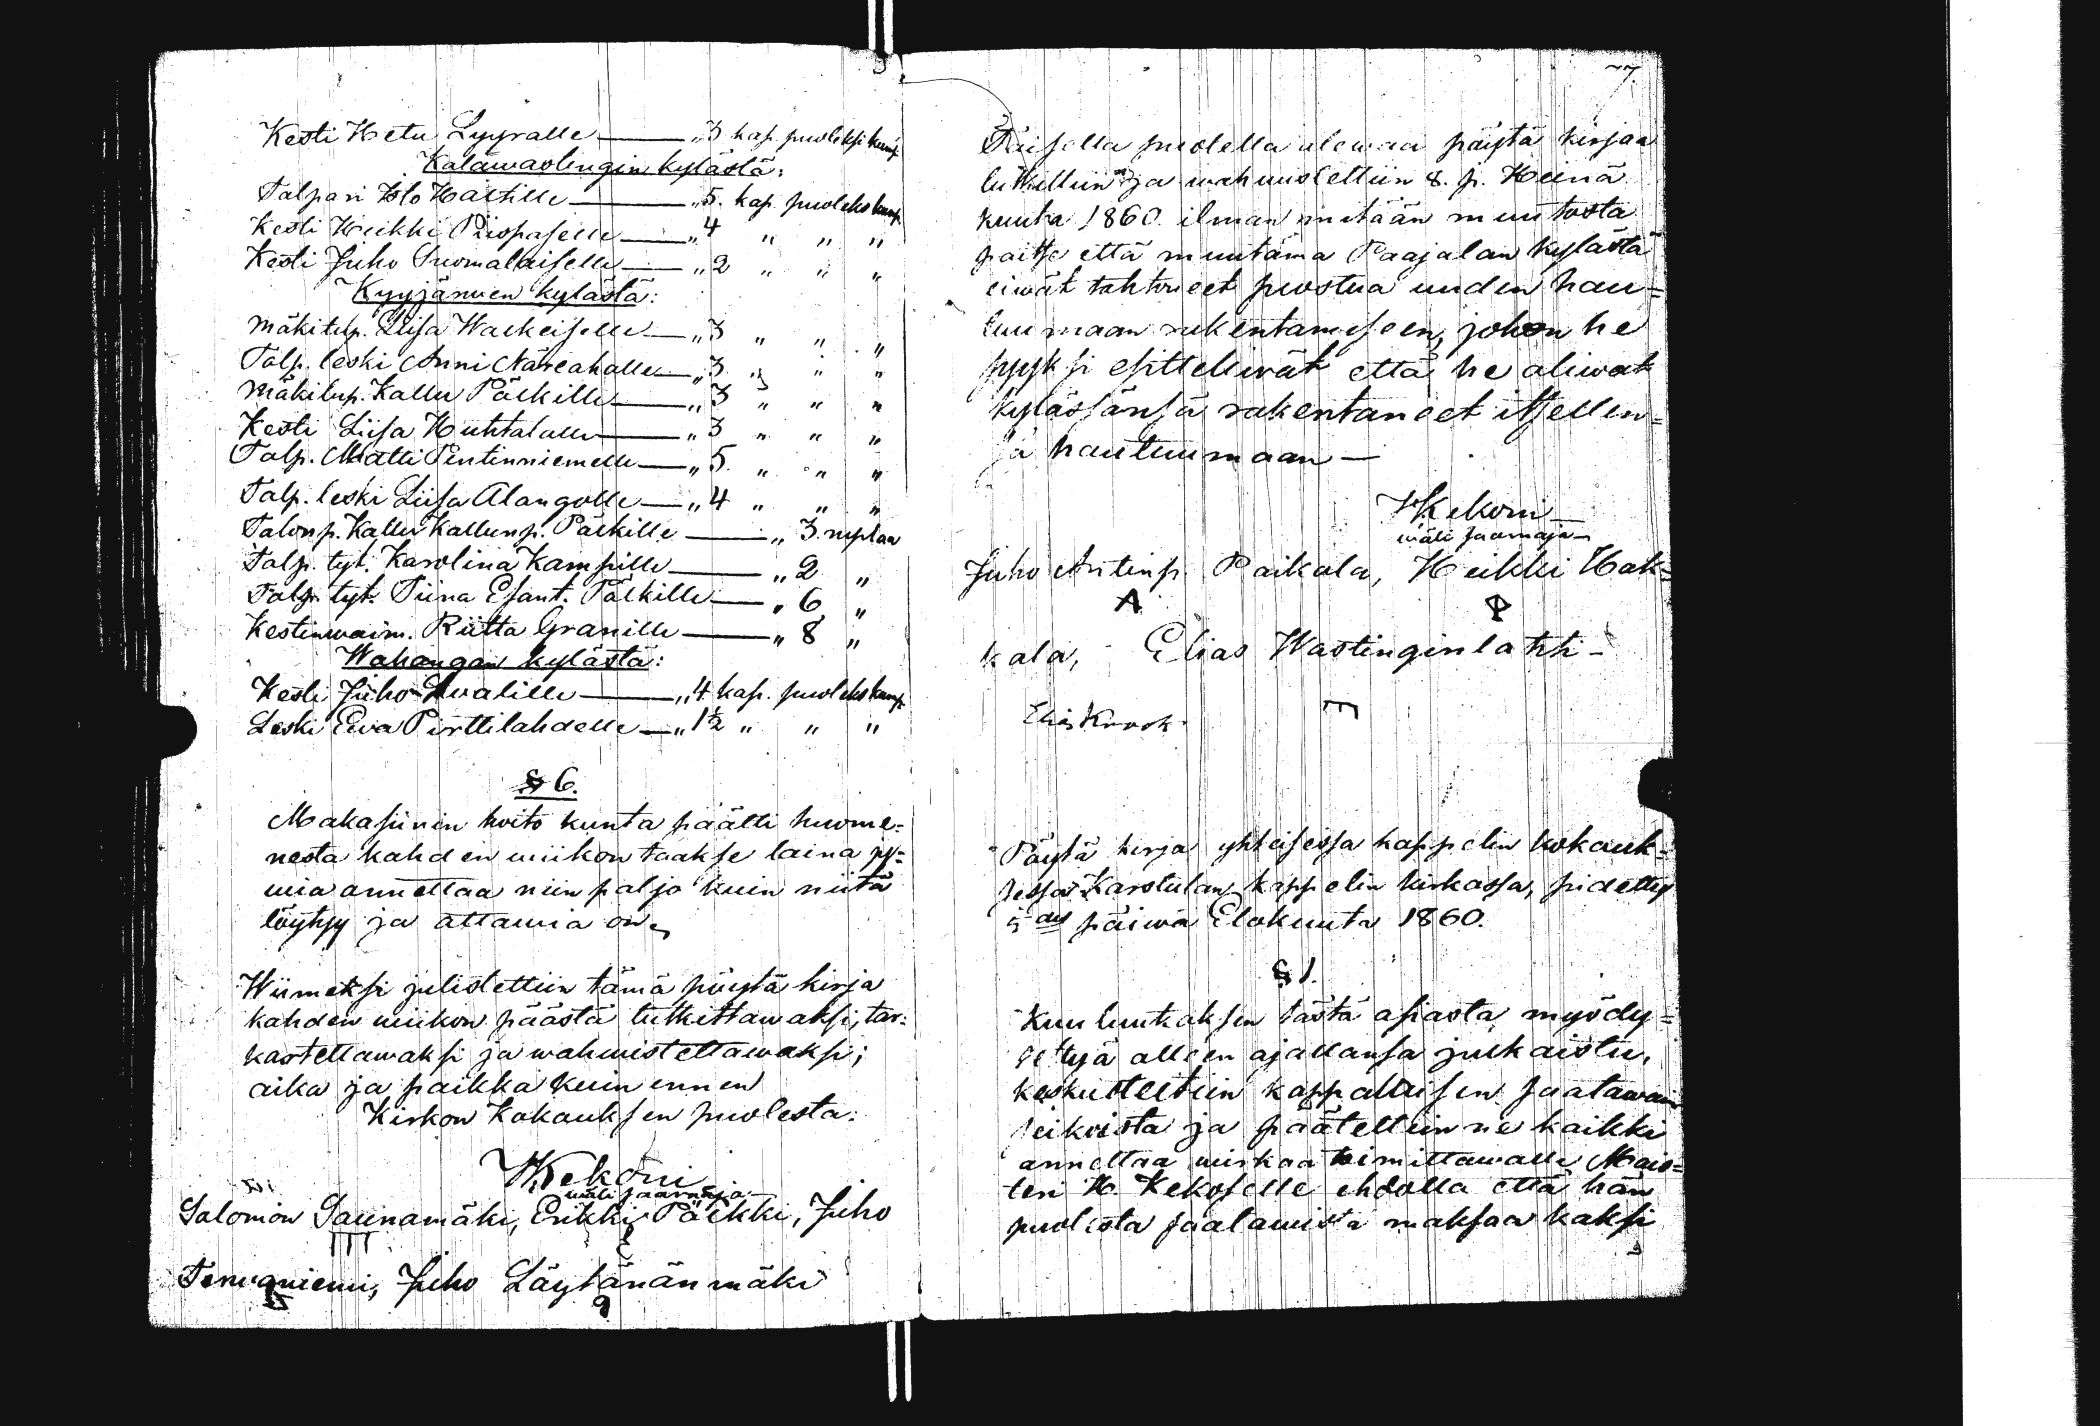 Kesti Hetu Lyyralle — „ 3 kap. puoleksi kump.
Kalawaolingin kylästä:
Talpari Isto Haltille — „ 5. kap. puoleks kump.
Kesti Heikki Piispaselle — „ 4 „ „ „
Kesti Juho Suomalaiselle — „ 2 „ „ „
Kyyjänwen kylästä:
Mäkitup. Liisa Waekeiselle — „ 3 „ „ „
Talp. leski Anni Näreahalle — „ 3 „ „ „
Mäkitup. Kallu Päckille — „ 3 „ „ „
Kesti Liisa Huhtalalle — „ 3 „ „ „
Talp. Matti Pentinniemelle — „ 5. „ „ „
Talp. leski Liisa Alangolle — „ 4 „ „ „
Talonp. Kallu Kallunp. Päckille — „ 3. ruplaa
Talp. tyt. Karolina Kampille — „ 2 „
Talp. tyt. Tiina Esant. Päckille — „ 6 „
Kestinwaim. Riitta Granille — „ 8 „
Wahangan kylästä:
Kesti Juho — „ 4 kap. puoleks kump.
Leski Ewa Pirttilahdelle — „ 1½ „ „ „
§ 6.
Makasiinin hoito kunta päätti huome=
nesta kahden wiikon taakse laina jy=
wiä annettaa niin paljo kuin niitä
löytyy ja attawia on.
Wiimeksi julistettiin tämä pöytä kirja
kahden wiikon päästä tutkittawaksi, tar=
kastettawaksi ja wahwistettawaksi;
aika ja paikka kuin ennen
Kirkon Kokauksen puolesta:
HKekoni
wäli saarnaja
Salomon Saunamäki, Erikki Päckki, Juho
Terwaniemi, Juho Läytänänmäki
77.
Täisella puolella alewaa päytä kirjaa
lutkittiin ja wahwistettiin 8. p. Heinä
kuuta 1860. ilman mitään muutosta
paitse että muutama Paajalan kylästä
eiwät tahtoneet puostua uuden hau=
tuumaan rakentamiseen, johon he
syyksi esittelliwät että he oliwat
kylässänsä rakentaneet itsellen=
sä hautuumaan —
HKekoni
wäli saarnaja
Juho Antinp. Paikala, Heikki Hak=
kala, Elias Wastinginlahti
Elias Krook
Päytä kirja yhteisessa kappelin kokauk=
sessa Karstulan kappelin kirkassa, pidetty
5 des päiwä Elokuuta 1860.
§ 1.
Kuulutuksen tästä asiasta myödy=
tettyä alleen ajallansa julkaistu,
keskusteltiin kappallaisen saatawain
seikoista ja päätettiin ne kaikki
annettaa wirkaa toimittawalle Mais=
teri H. Kekoselle ehdolla että hän
puolista saatawista maksaa kaksi